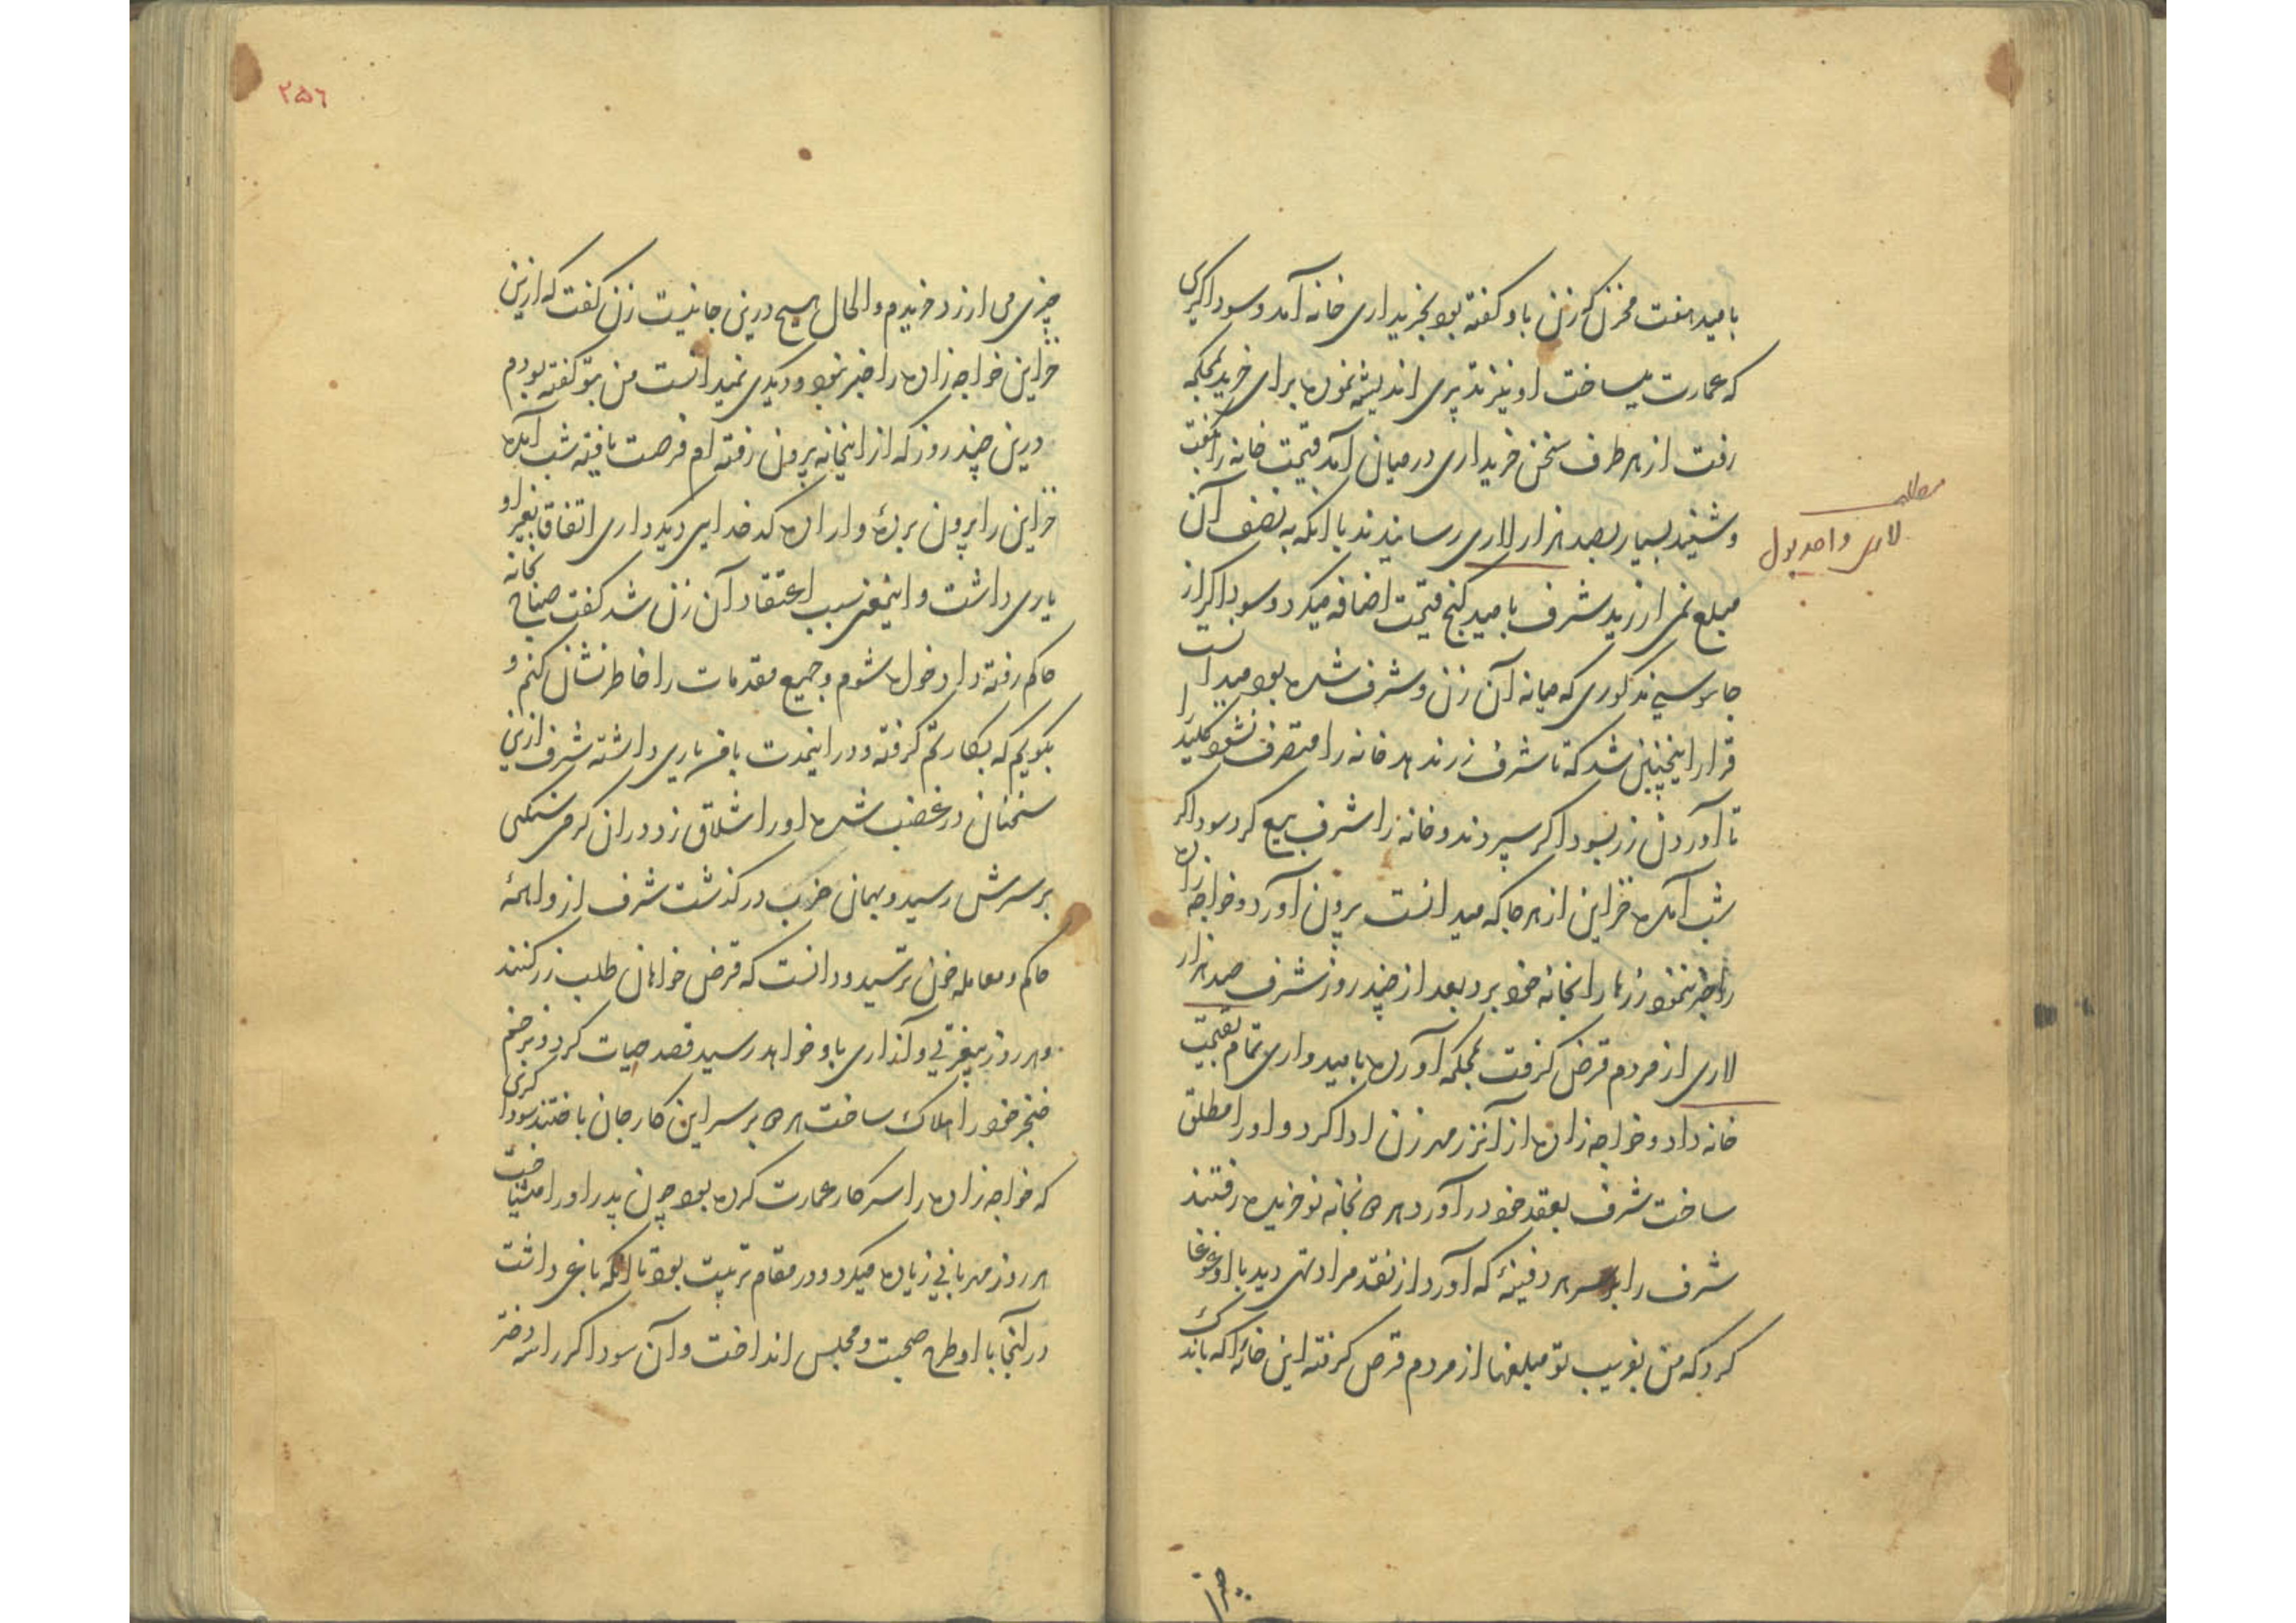 بامید هفت مخزن که زن باو گفته بود بخریداری خانه آمد و سوداگری
که عمارت میساخت او نیز تدبیری اندیشه نموده برای خرید بمحکمه
رفت از هر طرف سخن خریداری درمیان آمد قیمت خانه را بگفت
و شنید بسیار بصد هزار لاری رسانیدند با آنکه به نصف آن
مبلغ نمی ارزید شرف بامید گنج قیمت اضافه میکرد و سوداگر از
جاسوسی مذکوری که میانه آن زن و شرف شده بود میدانست
قرار اینچنین شد که تا شرف زر ندهد خانه را متصرف نشود کلید را
تا آوردن زر بسوداگر سپردند و خانه را شرف بیع کرد سوداگر
شب آمده خزاین از هر جا که میدانست برون آورد و خواجه زاده
را خبر ننمود زرها را بخانه خود برد بعد از چند روز شرف صد هزار
لاری از مردم قرض گرفت بمحکمه آورده بامیدواری تمام بقیمت
خانه داد و خواجه زاده از آن زر مهر زن ادا کرد و او را مطلق
ساخت شرف بعقد خود درآورد هر دو بخانه نو خریده رفتند
شرف را بر سر هر دفینهٔ که آورد از نقد مراد تهی دید با او غوغا
کرد که من بفریب تو مبلغها از مردم قرض گرفته این خانه را که باندک
چیزی
مطلب
لاری واحد پول
۲۵۶
چیزی می ارزد خریدم والحال هیچ درین جا نیست زن گفت که ازین
خزاین خواجه زاده را خبر نبود و دیگری نمیدانست من بتو گفته بودم
درین چند روز که از اینخانه برون رفته ام فرصت یافته شب آمده
خزاین را برون بردهٔ و اراده کدخدایی دیگر داری اتفاقا بغیر او
یاری داشت و اینمعنی سبب اعتقاد آن زن شد گفت صباح بخانه
حاکم رفته دادخواه شوم و جمیع مقدمات را خاطرنشان کنم و
بگویم که بکارتم گرفته و در اینمدت با من یاری داشته شرف ازین
سخنان در غضب شده او را شلاق زد و در آن گرمی سنگی
بر سرش رسید و بهمان ضرب درگذشت شرف از واهمهٔ
حاکم و معامله خون ترسید و دانست که قرض خواهان طلب زر کنند
و هر روز بیعزتی و آزاری باو خواهد رسید قصد حیات کرد و بزخم
خنجر خود را هلاک ساخت هر دو بر سر این کار جان باختند سوداگری
که خواجه زاده را سرکار عمارت کرده بود چون پدر او را میشناخت
هر روز مهربانی زیاده میکرد و در مقام تربیت بود تا آنکه باغی داشت
در آنجا با او طرح صحبت و مجلس انداخت و آن سوداگر را سه دختر